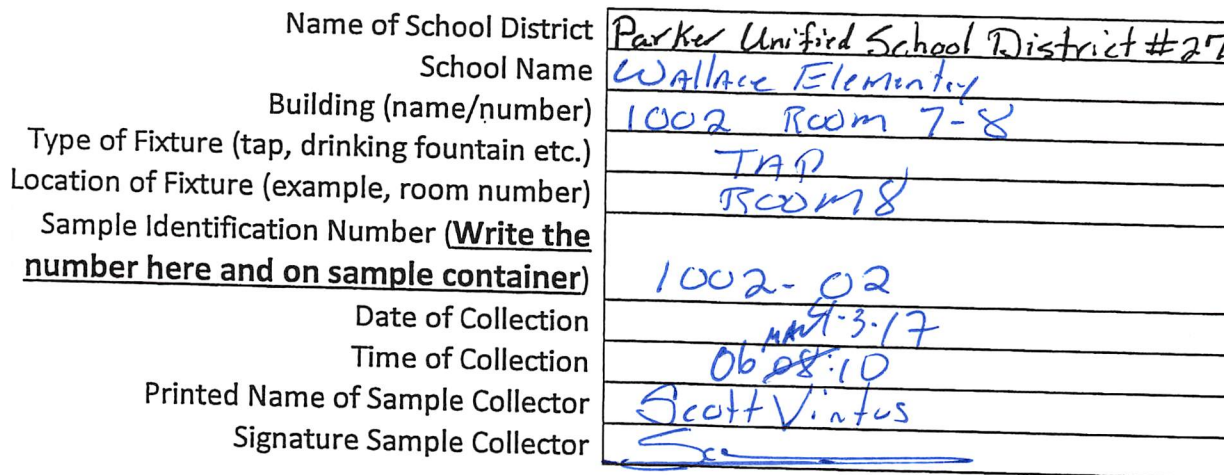 Name of School District Parker Unified School District #27
School Name Wallace Elementry
Building (name/number) 1002 Room 7-8
Type of Fixture (tap, drinking fountain etc.) TAP
Location of Fixture (example, room number) Room 8
Sample Identification Number (Write the
number here and on sample container) 1002-02
Date of Collection 4-3-17
Time of Collection 06 08:10
Printed Name of Sample Collector Scott Vintus
Signature Sample Collector